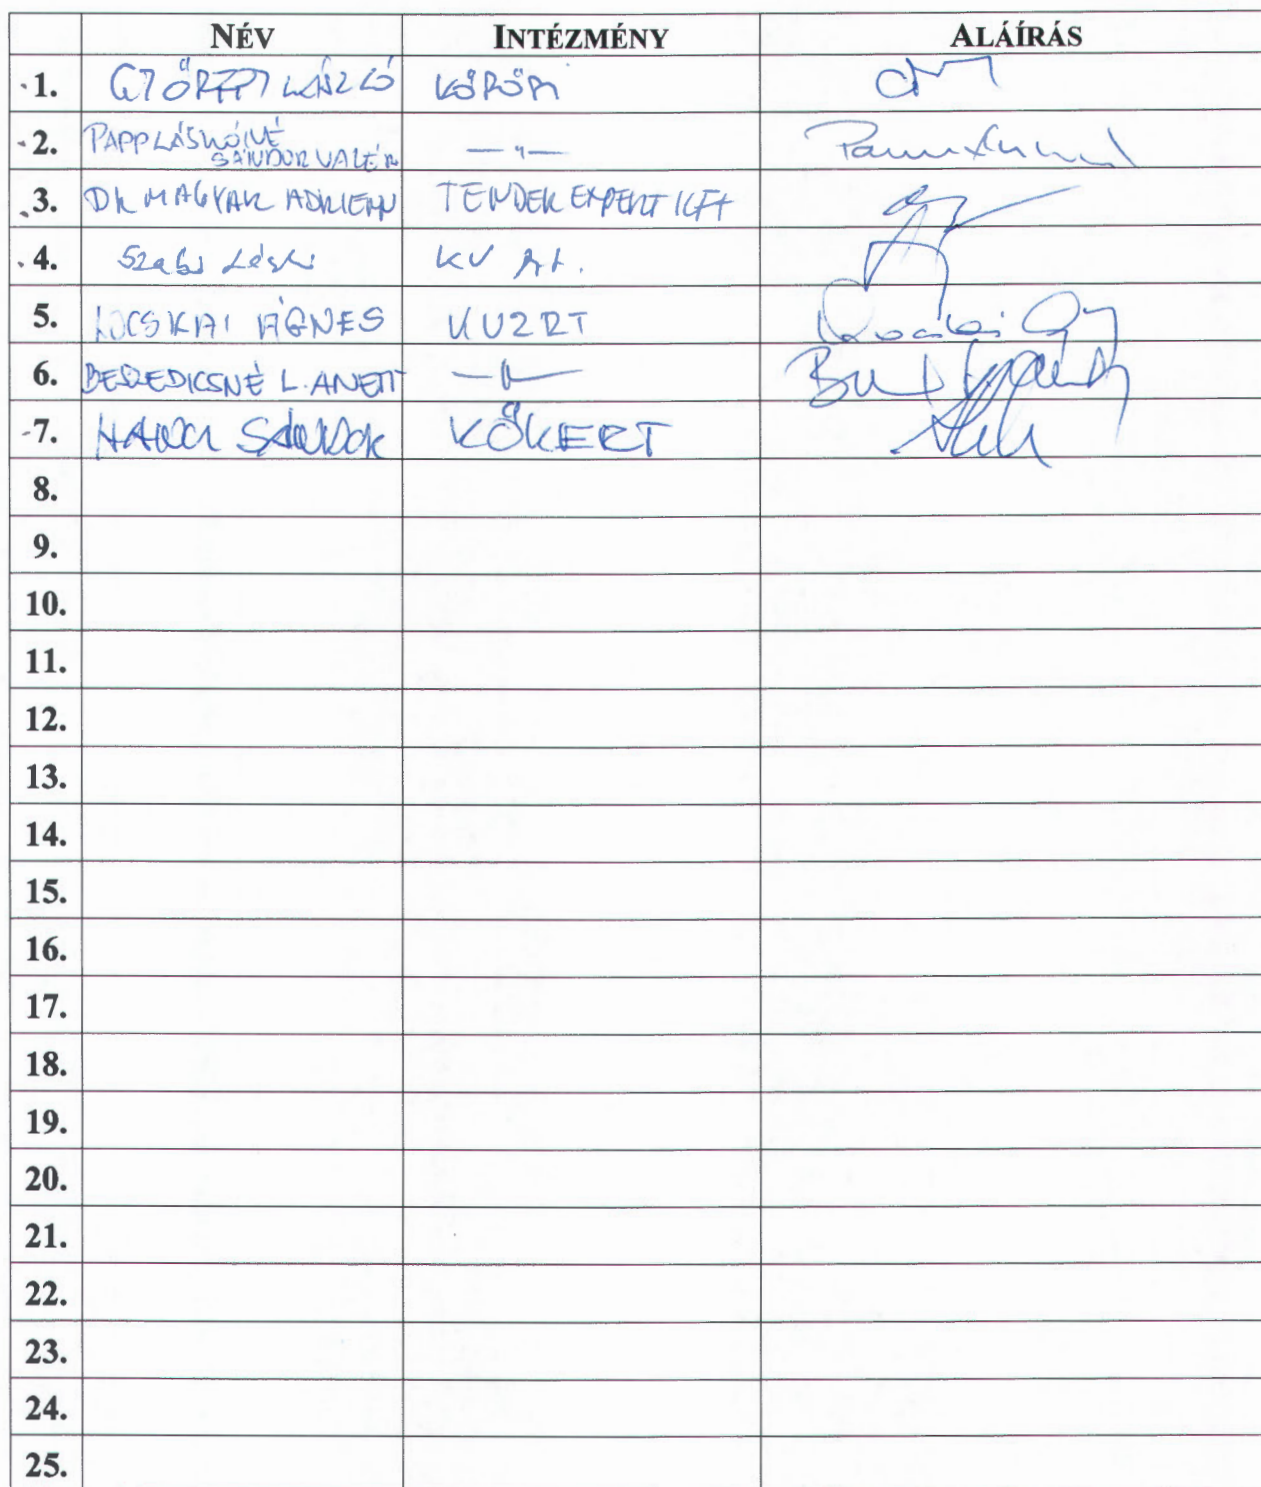 NÉV INTÉZMÉNY ALÁÍRÁS
1. GYŐRFFI LÁSZLÓ KŐRÖPI
2. PAPP LÁSZLÓNÉ
SÁNDOR VALÉR — " —
3. DR MAGYAR ADRIENN TENDER EXPERT KFT
4. Szabó László KV Rt.
5. LOCSKAI ÁGNES KVZRT
6. BESZEDICSNÉ L. ANETT — " —
7. SÁNDOR KŐKERT
8.
9.
10.
11.
12.
13.
14.
15.
16.
17.
18.
19.
20.
21.
22.
23.
24.
25.